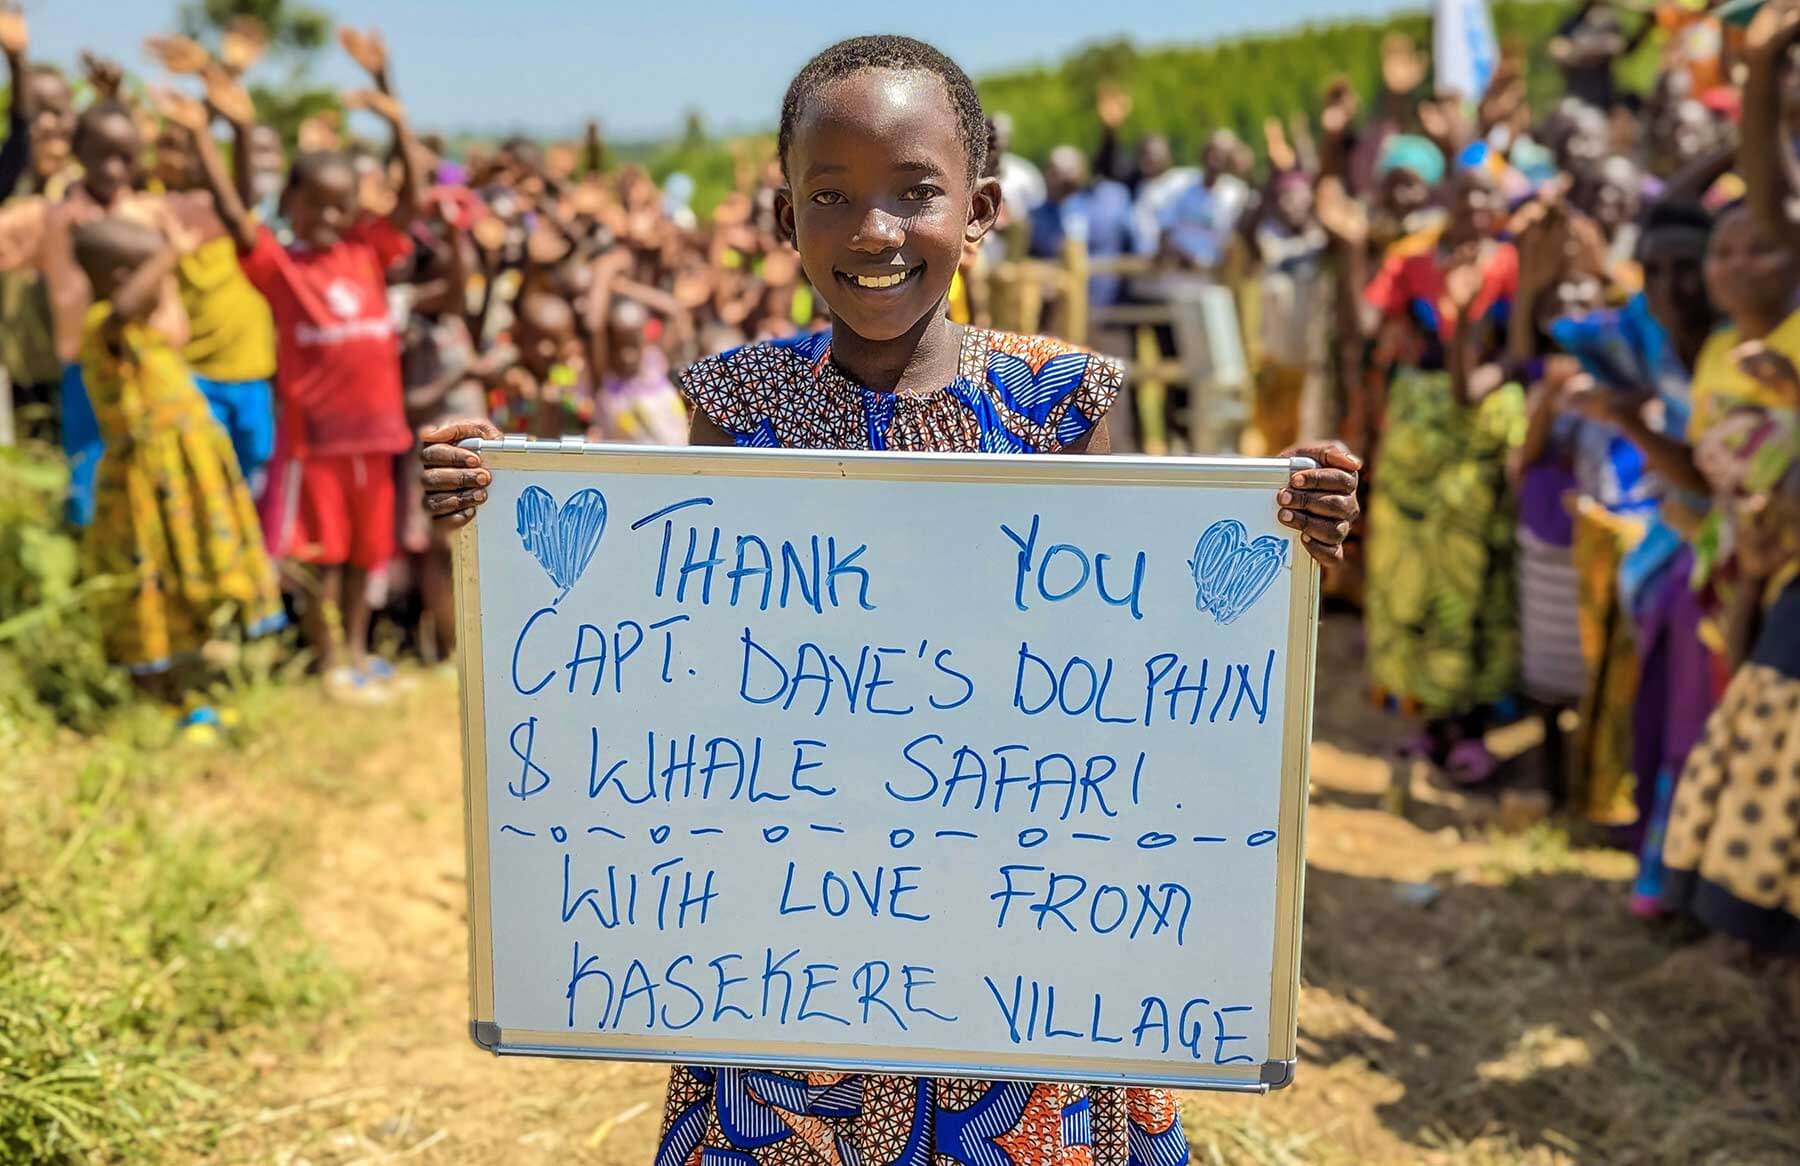 THANK YOU
CAPT. DAVE'S DOLPHIN
& WHALE SAFARI.
WITH LOVE FROM
KASEKERE VILLAGE